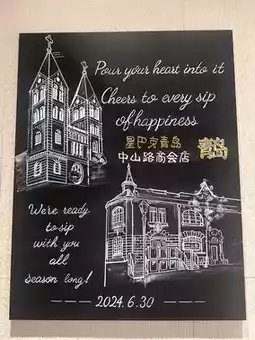 Pour your heart into it
Cheers to every sip
of happiness
星巴克青岛
中山路商会店
青岛
We're ready
to sip
with you
all
season long!
2024.6.30